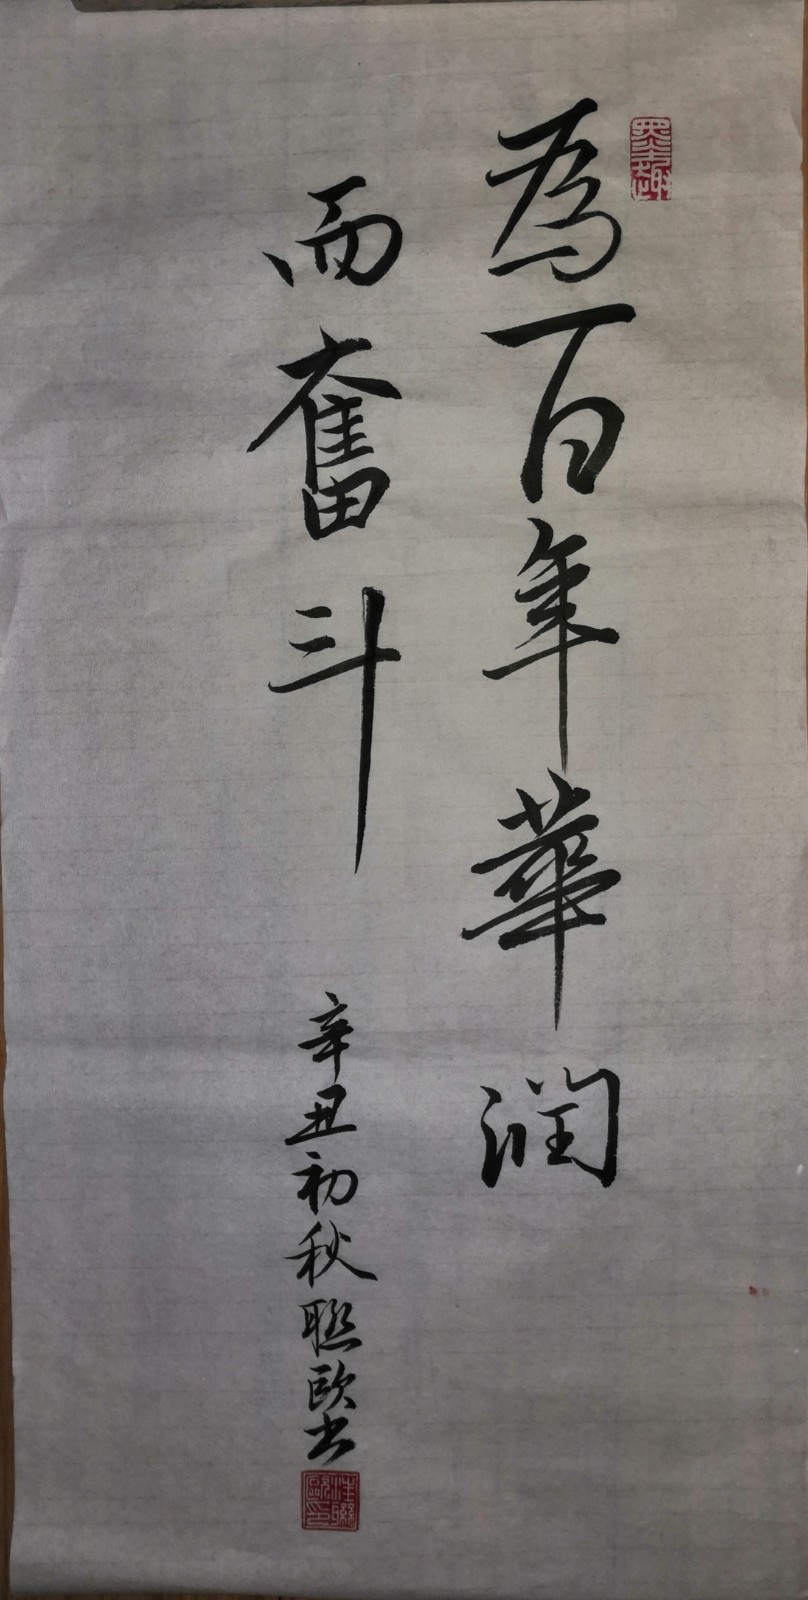 為百年華润
而奮斗
辛丑初秋聯欧书